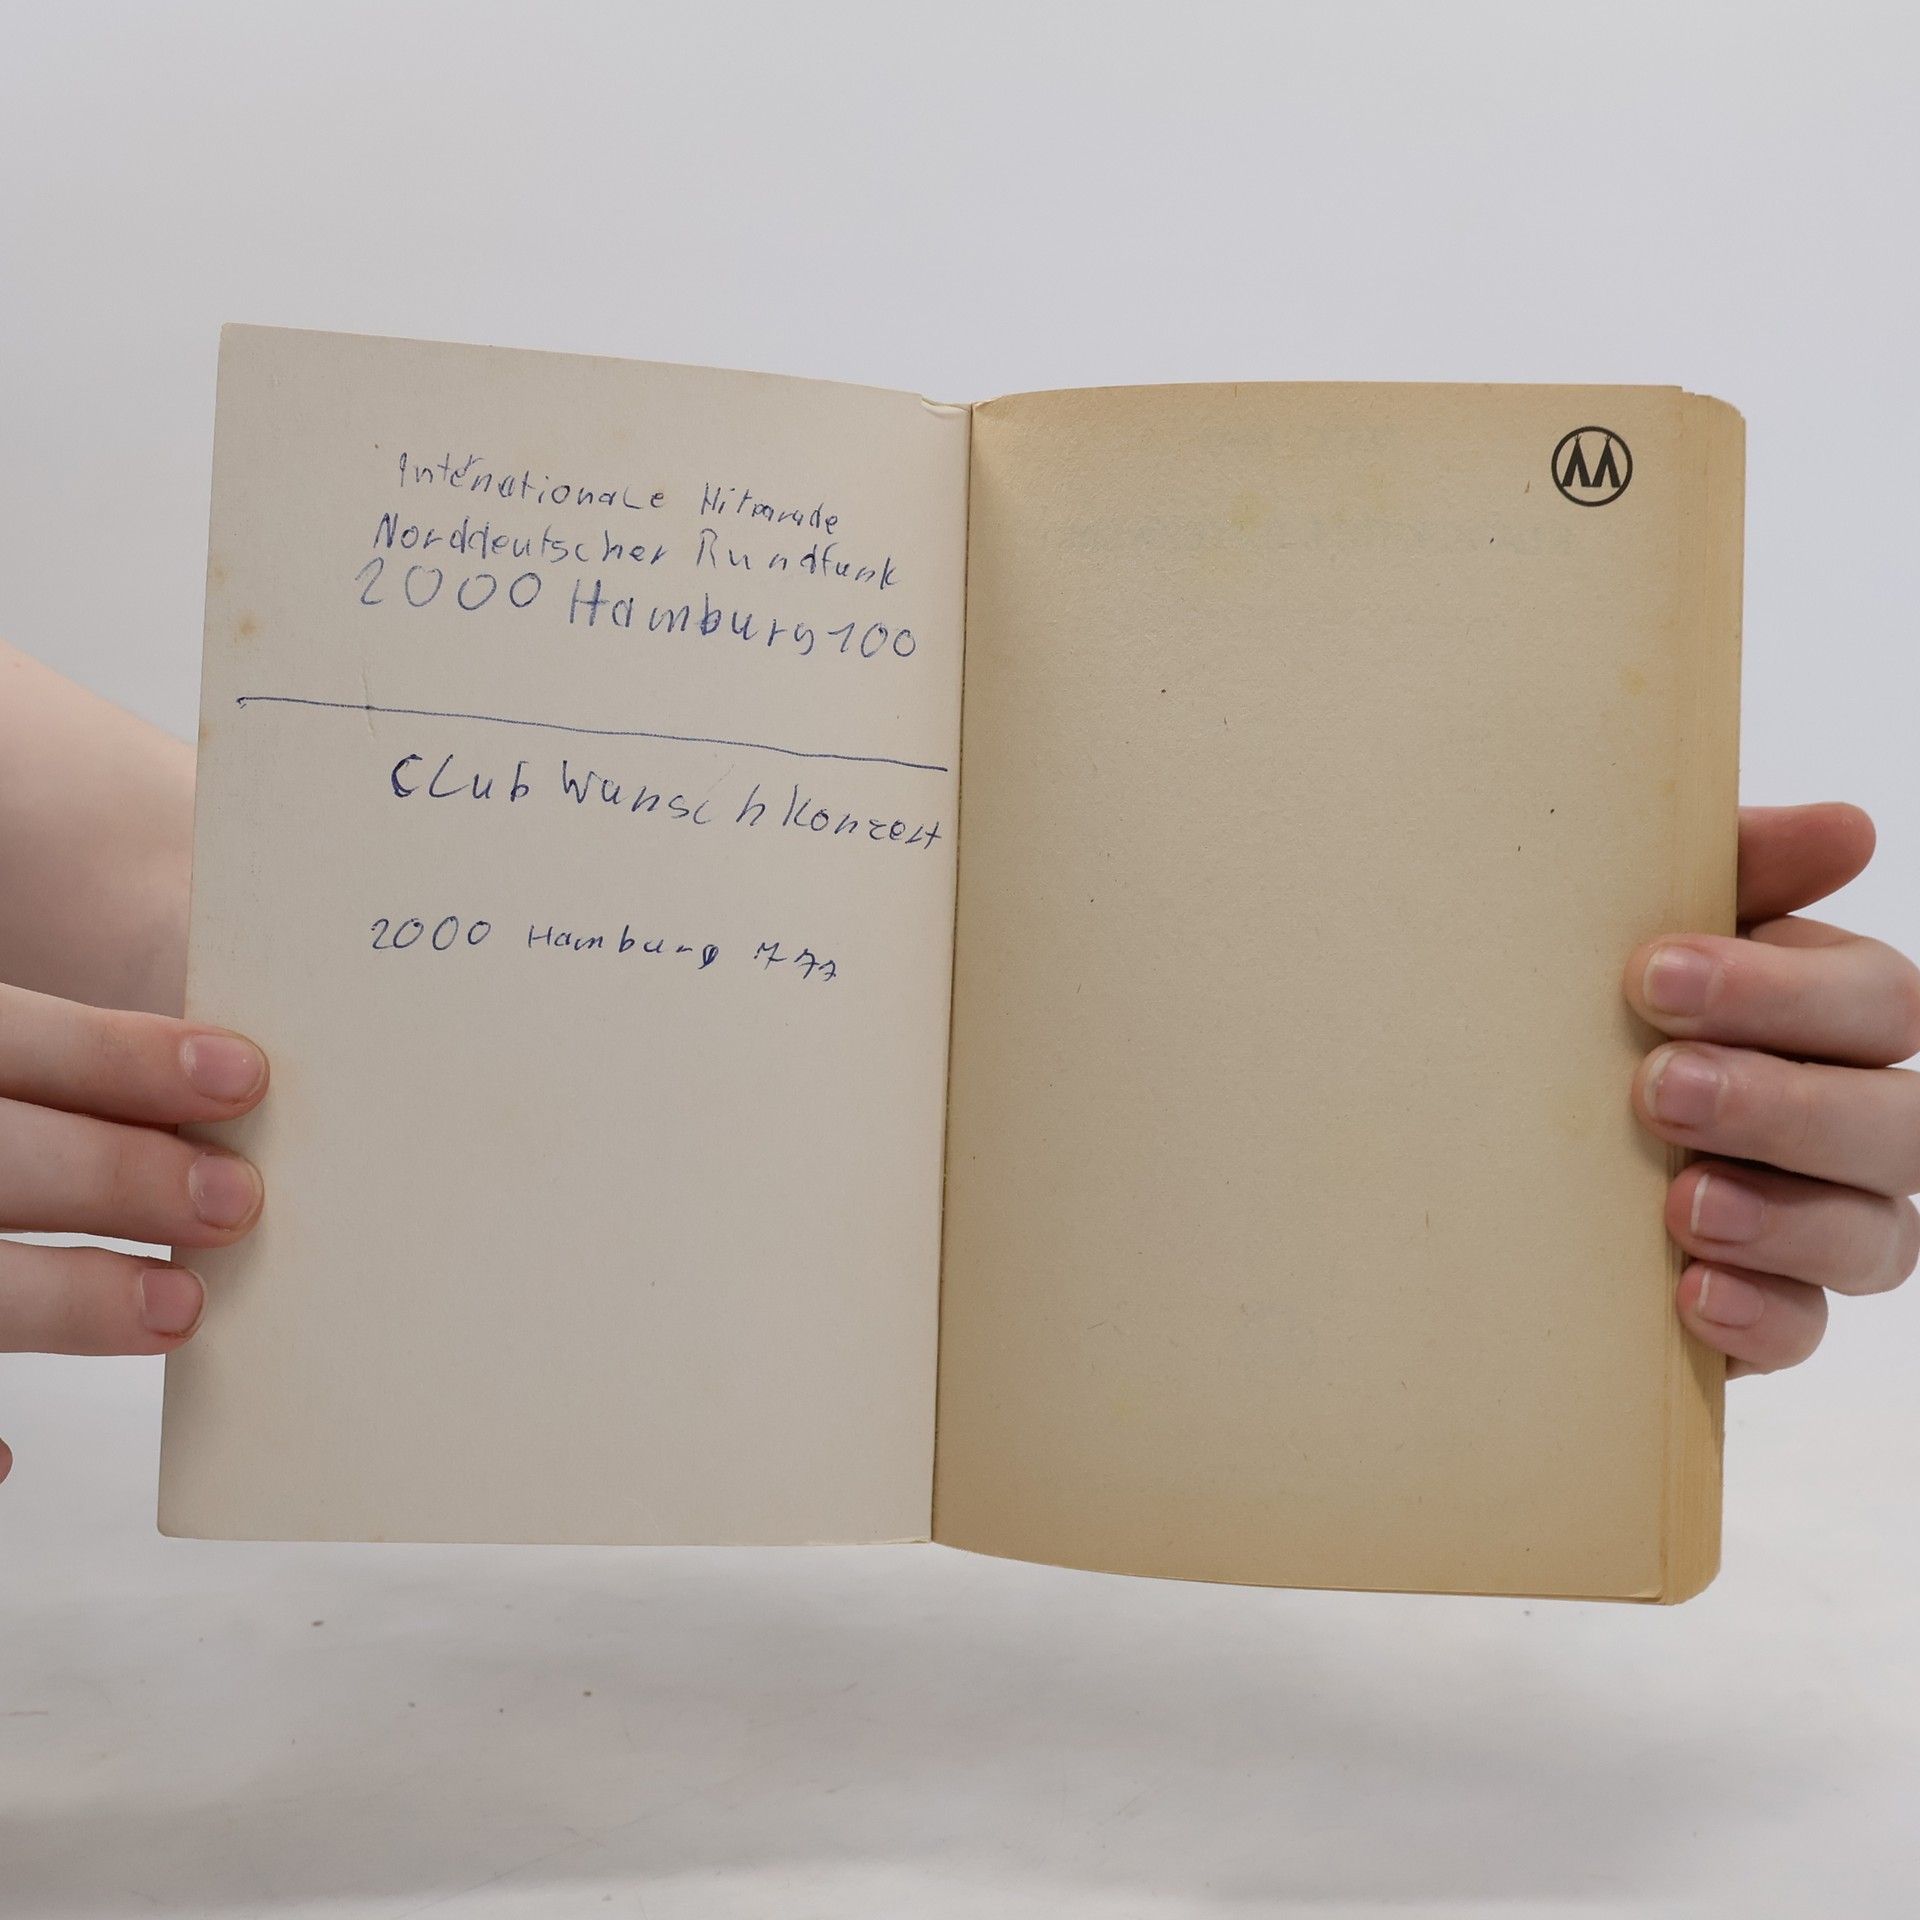 Internationale Hitparade
Norddeutscher Rundfunk
2000 Hamburg 100
CLub Wunschkonzert
2000 Hamburg 777